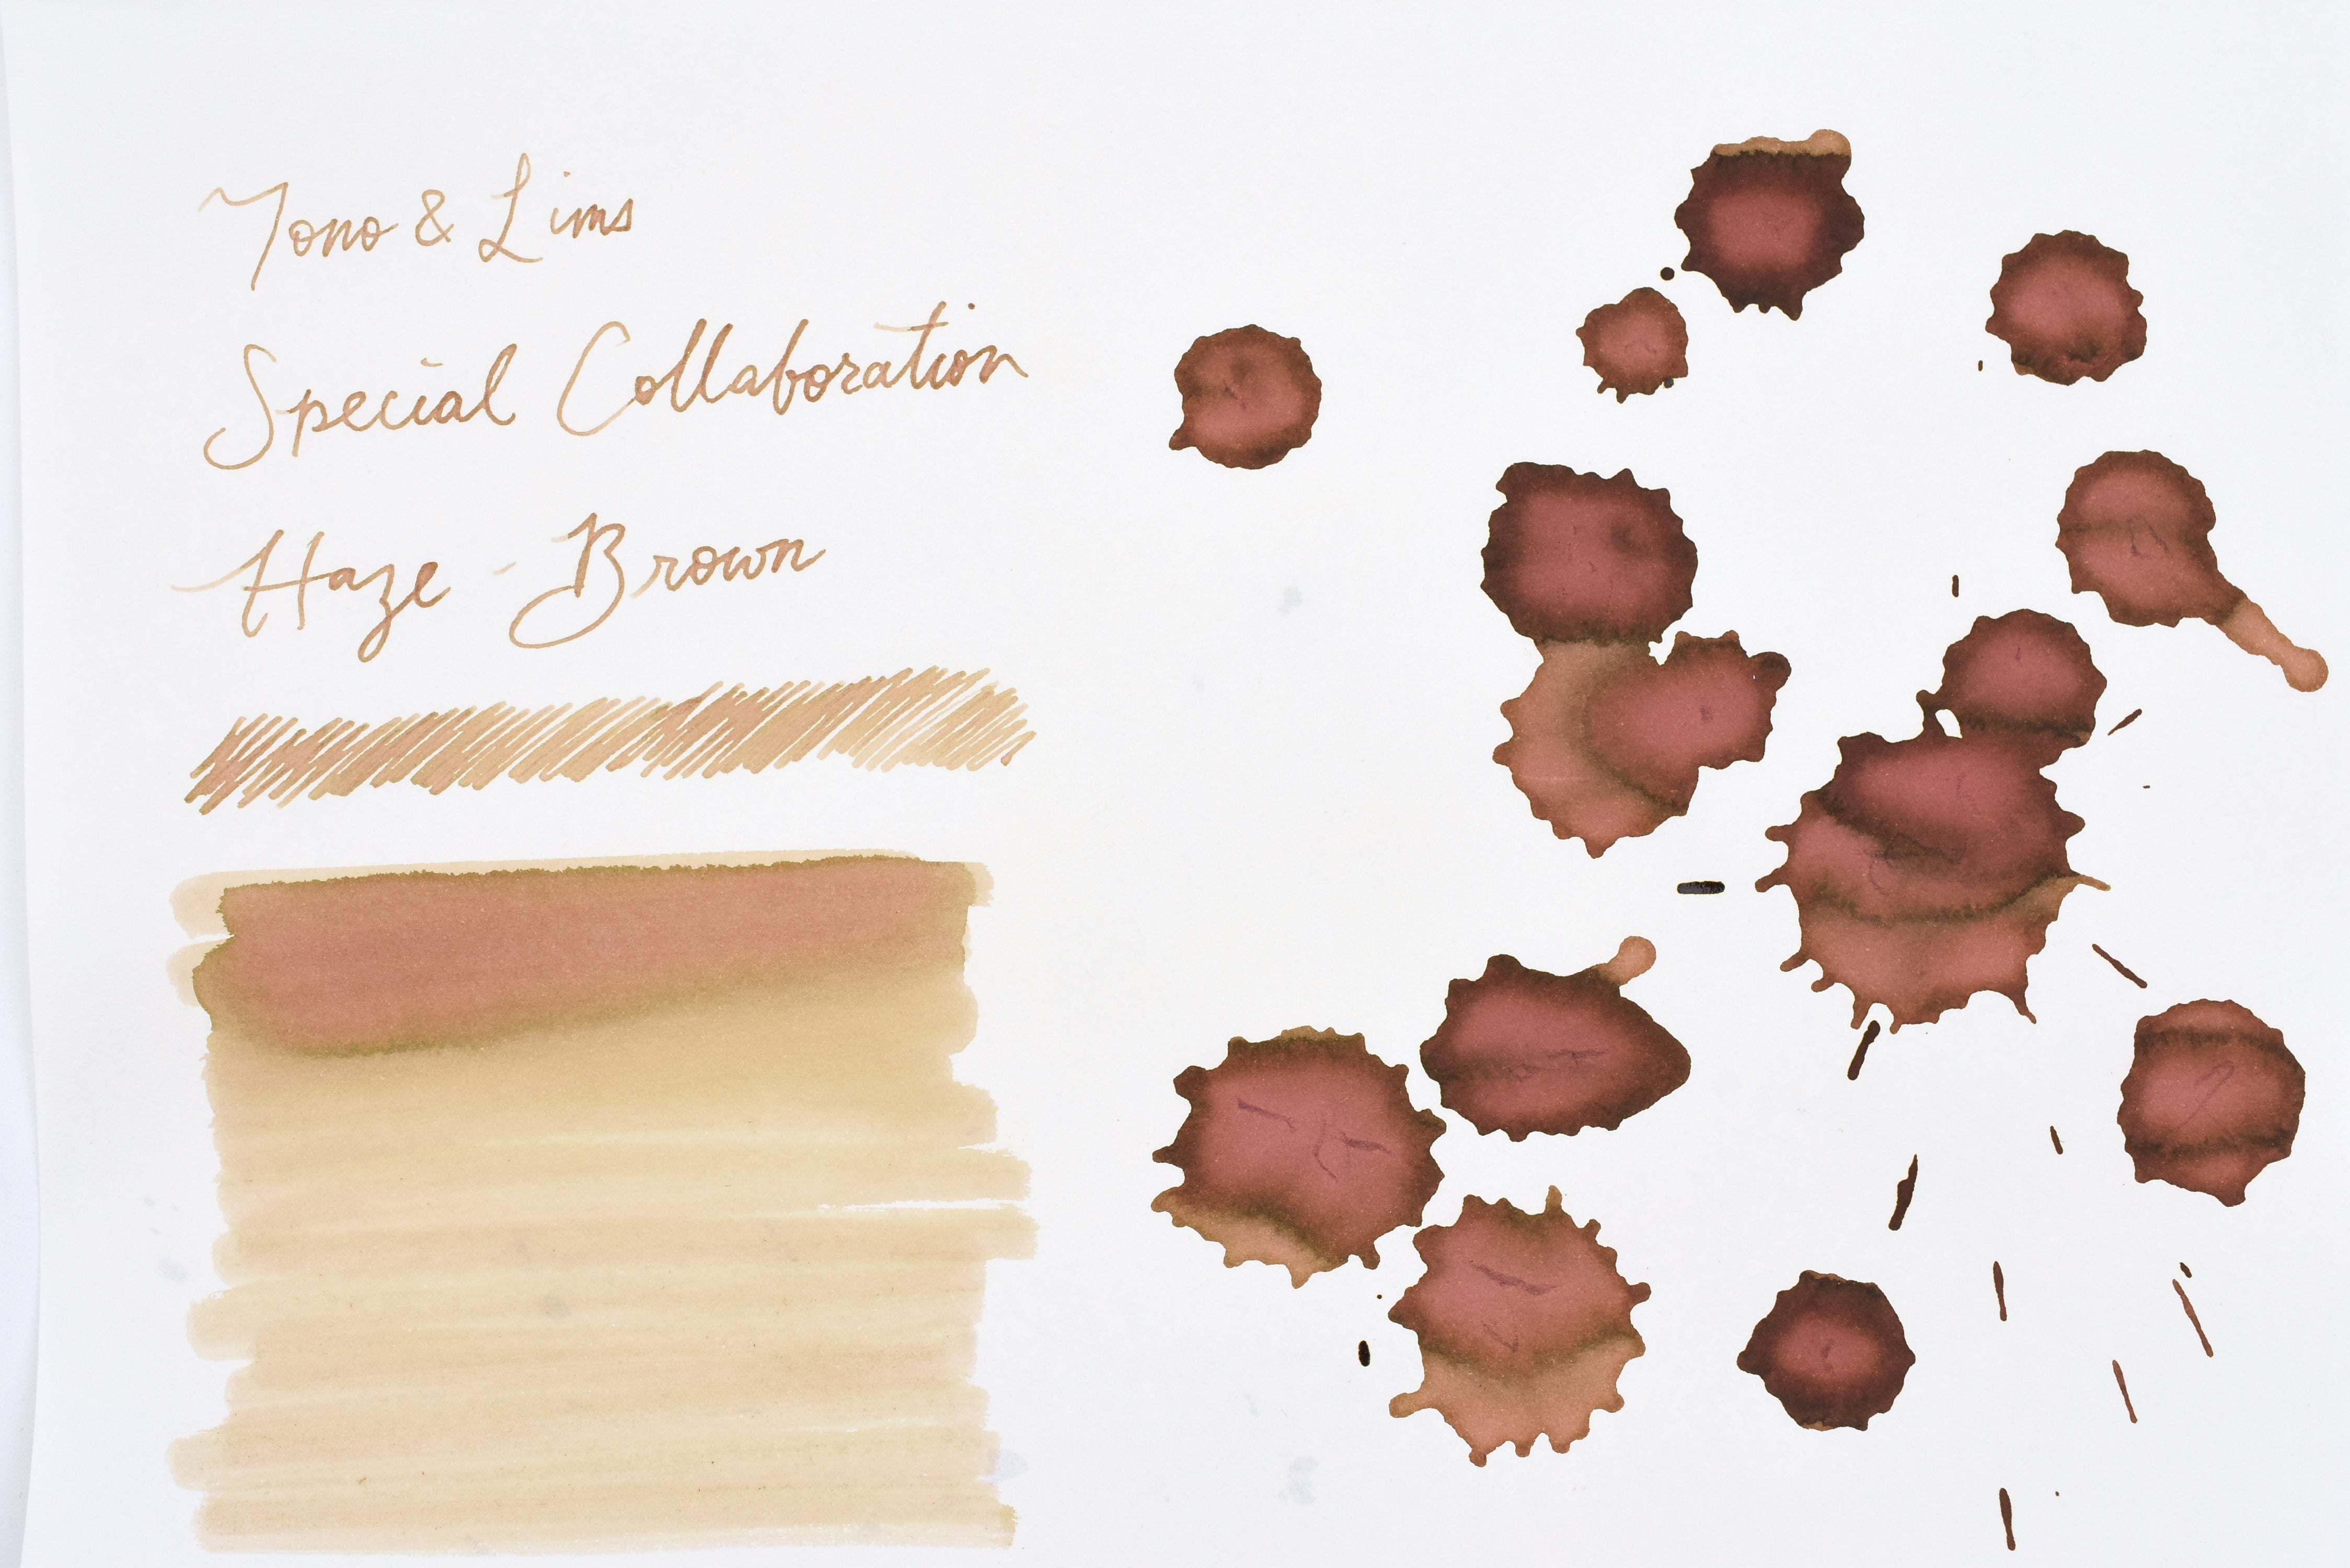 Tono & Lims
Special Collaboration
Haze - Brown